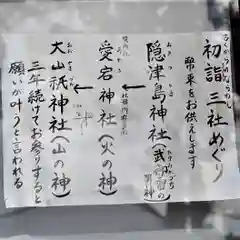 初詣 三社めぐり
幣束をお供えします
隠津島神社(武
愛宕神社(火の神)
大山祇神社(山の神)
三年続けてお参りすると
願いが叶うと言われる